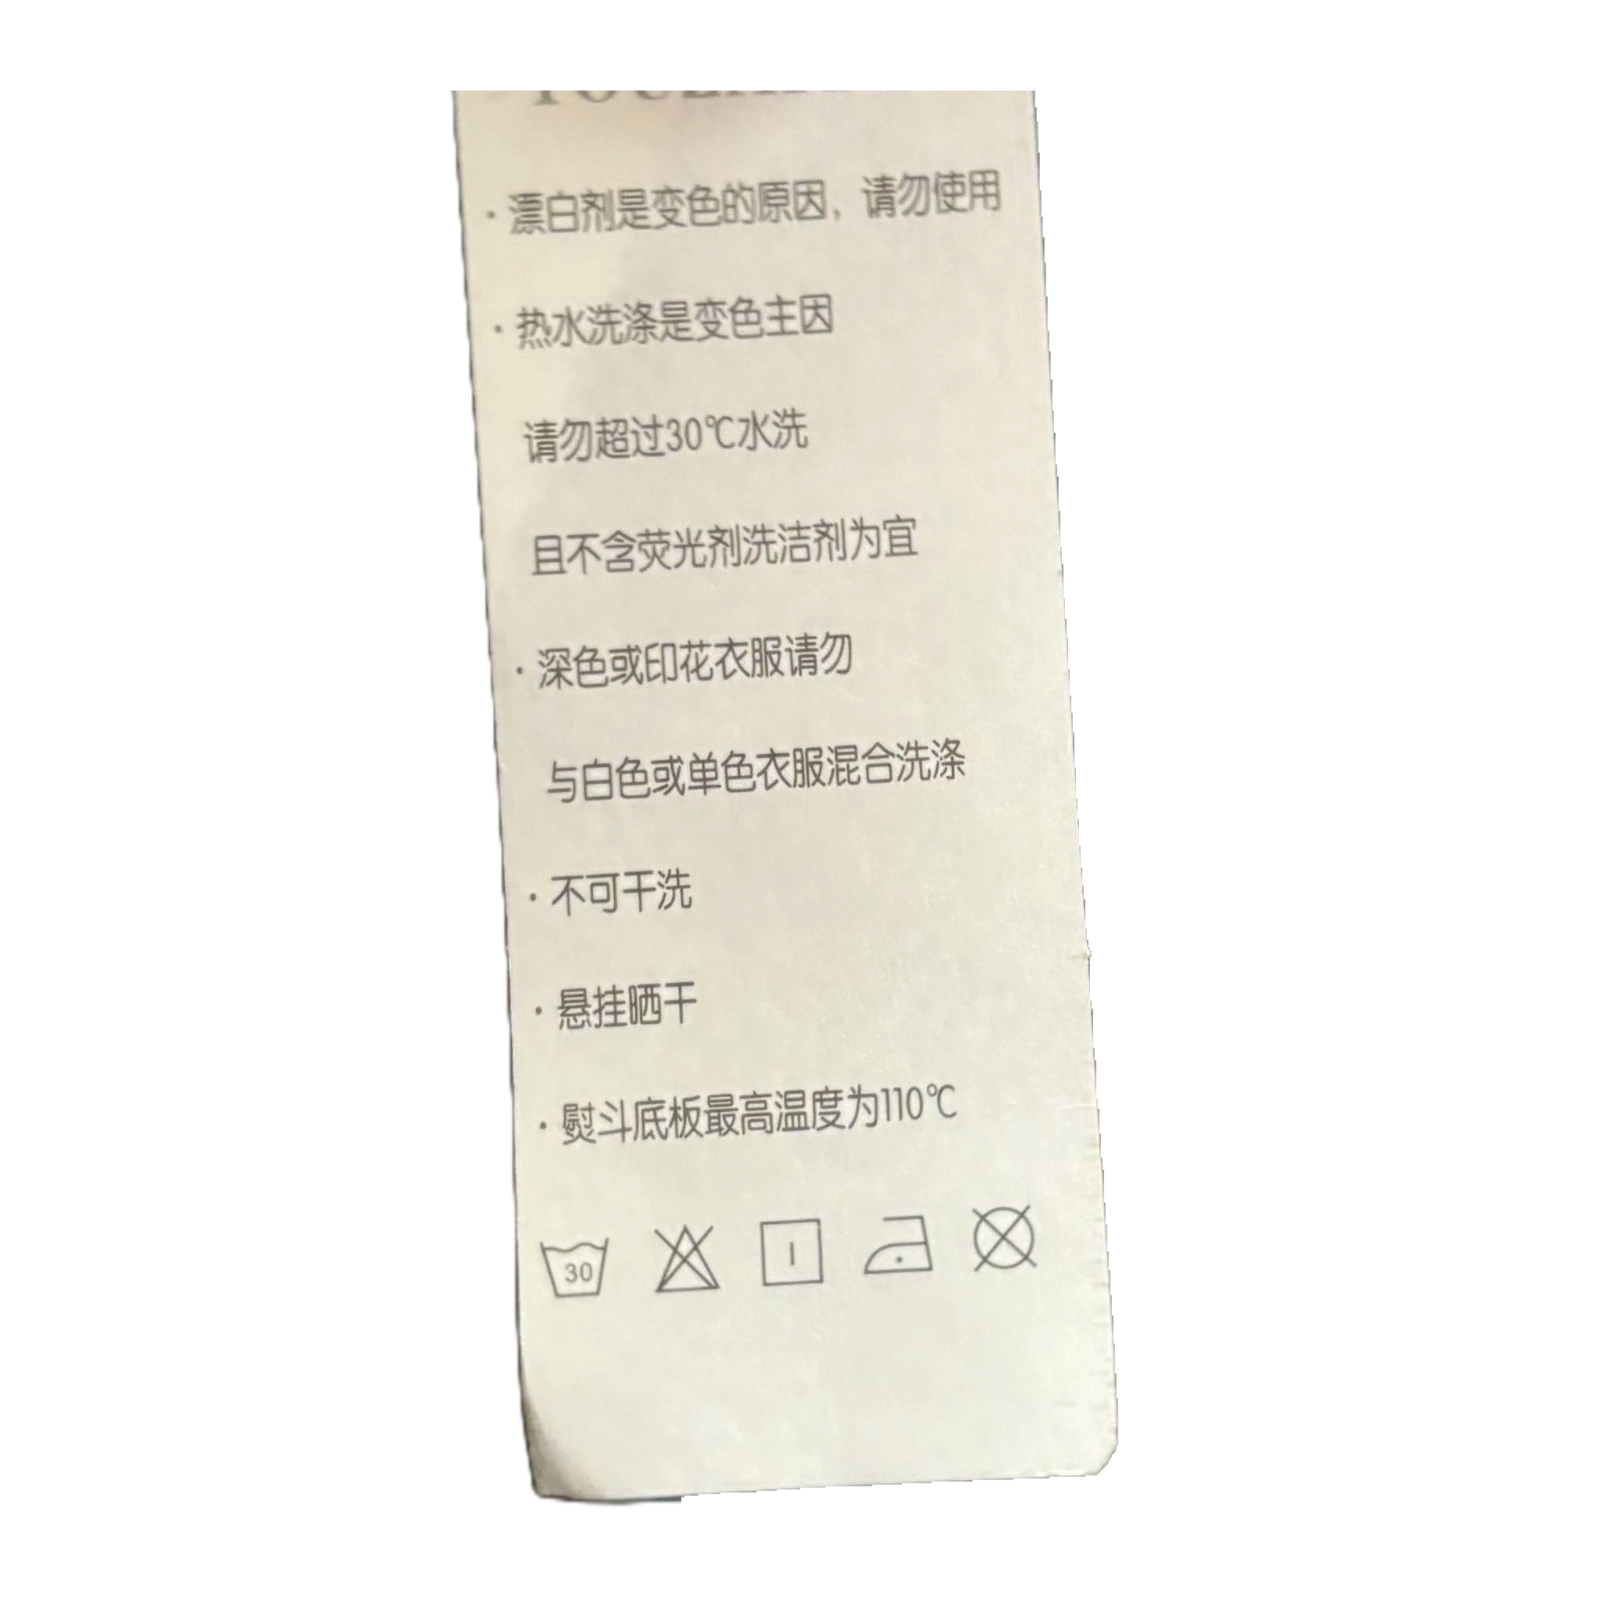 ·漂白剂是变色的原因，请勿使用
·热水洗涤是变色主因
请勿超过30℃水洗
且不含荧光剂洗洁剂为宜
·深色或印花衣服请勿
与白色或单色衣服混合洗涤
·不可干洗
·悬挂晒干
·熨斗底板最高温度为110℃
30